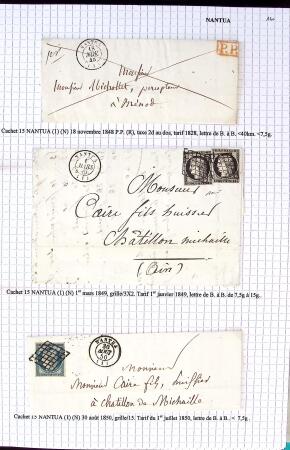 NANTUA
NANTUA
18
NOV.
48
(1)
P.P.
Monsieur
Monsieur Michollet, percepteur
à
Cachet 15 NANTUA (1) (N) 18 novembre 1848 P.P. (R), taxe 2d au dos, tarif 1828, lettre de B. à B. <40km. <7,5g.
NANTUA
1
MARS
49
(1)
Monsieur
Caire fils huissier
Châtillon michaille
(Ain)
Cachet 15 NANTUA (1) (N) 1er mars 1849, grille/3X2. Tarif 1er janvier 1849, lettre de B. à B. de 7,5g à 15g.
NANTUA
30
AOUT
50
(1)
Monsieur
Monsieur Caire fils, huissier
à chatillon de Michaille
Cachet 15 NANTUA (1) (N) 30 août 1850, grille/15. Tarif du 1er juillet 1850, lettre de B. à B. < 7,5g.